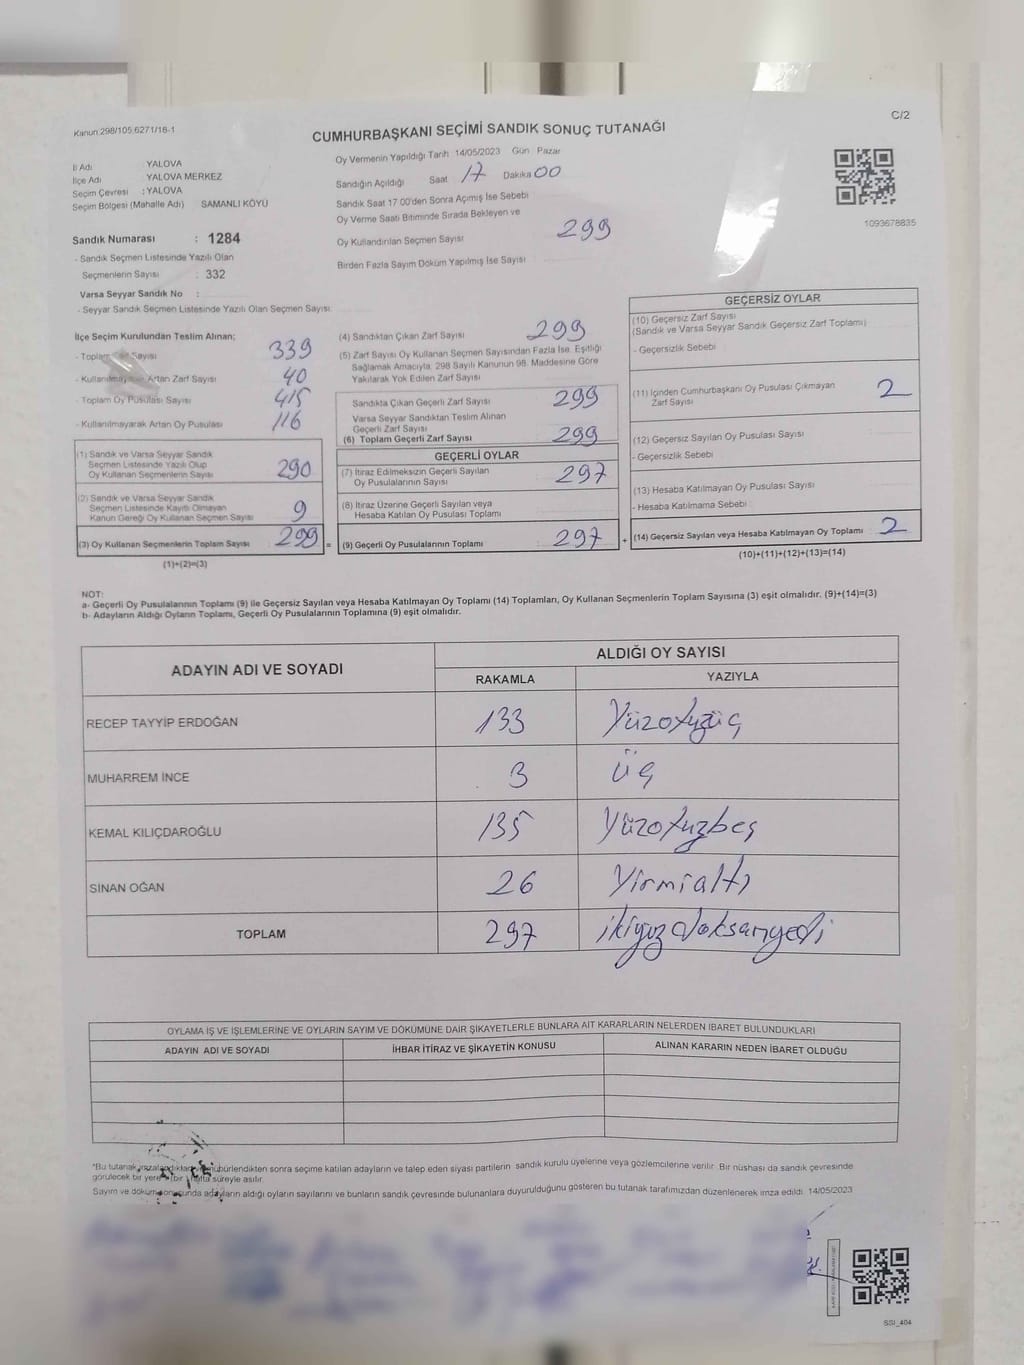 Kanun:298/105,6271/16-1
C/2
CUMHURBAŞKANI SEÇİMİ SANDIK SONUÇ TUTANAĞI
İl Adı : YALOVA
İlçe Adı : YALOVA MERKEZ
Seçim Çevresi : YALOVA
Seçim Bölgesi (Mahalle Adı) SAMANLI KÖYÜ
Oy Vermenin Yapıldığı Tarih 14/05/2023 Gün Pazar
Sandığın Açıldığı Saat 17 Dakika 00
Sandık Saat 17.00'den Sonra Açımış İse Sebebi
Oy Verme Saati Bitiminde Sırada Bekleyen ve
Oy Kullandırılan Seçmen Sayısı 299
Birden Fazla Sayım Döküm Yapılmış İse Sayısı
1093678835
Sandık Numarası : 1284
- Sandık Seçmen Listesinde Yazılı Olan
Seçmenlerin Sayısı : 332
Varsa Seyyar Sandık No :
- Seyyar Sandık Seçmen Listesinde Yazılı Olan Seçmen Sayısı:
İlçe Seçim Kurulundan Teslim Alınan;
- Toplam Zarf Sayısı 339
- Kullanılmayarak Artan Zarf Sayısı 40
- Toplam Oy Pusulası Sayısı 415
- Kullanılmayarak Artan Oy Pusulası 116
(1) Sandık ve Varsa Seyyar Sandık
Seçmen Listesinde Yazılı Olup
Oy Kullanan Seçmenlerin Sayısı 290
(2) Sandık ve Varsa Seyyar Sandık
Seçmen Listesinde Kayıtlı Olmayan
Kanun Gereği Oy Kullanan Seçmen Sayısı 9
(3) Oy Kullanan Seçmenlerin Toplam Sayısı 299 =
(1)+(2)=(3)
(4) Sandıktan Çıkan Zarf Sayısı 299
(5) Zarf Sayısı Oy Kullanan Seçmen Sayısından Fazla İse, Eşitliği
Sağlamak Amacıyla, 298 Sayılı Kanunun 98. Maddesine Göre
Yakılarak Yok Edilen Zarf Sayısı
Sandıkta Çıkan Geçerli Zarf Sayısı 299
Varsa Seyyar Sandıktan Teslim Alınan
Geçerli Zarf Sayısı
(6) Toplam Geçerli Zarf Sayısı 299
GEÇERLİ OYLAR
(7) İtiraz Edilmeksizin Geçerli Sayılan
Oy Pusulalarının Sayısı 297
(8) İtiraz Üzerine Geçerli Sayılan veya
Hesaba Katılan Oy Pusulası Toplamı
(9) Geçerli Oy Pusulalarının Toplamı 297 +
GEÇERSİZ OYLAR
(10) Geçersiz Zarf Sayısı
(Sandık ve Varsa Seyyar Sandık Geçersiz Zarf Toplamı)
- Geçersizlik Sebebi
(11) İçinden Cumhurbaşkanı Oy Pusulası Çıkmayan
Zarf Sayısı 2
(12) Geçersiz Sayılan Oy Pusulası Sayısı
- Geçersizlik Sebebi
(13) Hesaba Katılmayan Oy Pusulası Sayısı
- Hesaba Katılmama Sebebi
(14) Geçersiz Sayılan veya Hesaba Katılmayan Oy Toplamı 2
(10)+(11)+(12)+(13)=(14)
NOT:
a- Geçerli Oy Pusulalarının Toplamı (9) ile Geçersiz Sayılan veya Hesaba Katılmayan Oy Toplamı (14) Toplamları, Oy Kullanan Seçmenlerin Toplam Sayısına (3) eşit olmalıdır. (9)+(14)=(3)
b- Adayların Aldığı Oyların Toplamı, Geçerli Oy Pusulalarının Toplamına (9) eşit olmalıdır.
ADAYIN ADI VE SOYADI ALDIĞI OY SAYISI
RAKAMLA YAZIYLA
RECEP TAYYİP ERDOĞAN 133 Yüzotuzüç
MUHARREM İNCE 3 üç
KEMAL KILIÇDAROĞLU 135 Yüzotuzbeş
SİNAN OĞAN 26 Yirmialtı
TOPLAM 297 ikiyüzdoksanyedi
OYLAMA İŞ VE İŞLEMLERİNE VE OYLARIN SAYIM VE DÖKÜMÜNE DAİR ŞİKAYETLERLE BUNLARA AİT KARARLARIN NELERDEN İBARET BULUNDUKLARI
ADAYIN ADI VE SOYADI İHBAR İTİRAZ VE ŞİKAYETİN KONUSU ALINAN KARARIN NEDEN İBARET OLDUĞU
*Bu tutanak imzalandıktan mühürlendikten sonra seçime katılan adayların ve talep eden siyasi partilerin sandık kurulu üyelerine veya gözlemcilerine verilir. Bir nüshası da sandık çevresinde
görülecek bir yere (bir) hafta süreyle asılır.
Sayım ve döküm sonucunda adayların aldığı oyların sayılarını ve bunların sandık çevresinde bulunanlara duyurulduğunu gösteren bu tutanak tarafımızdan düzenlenerek imza edildi. 14/05/2023
SSI_404